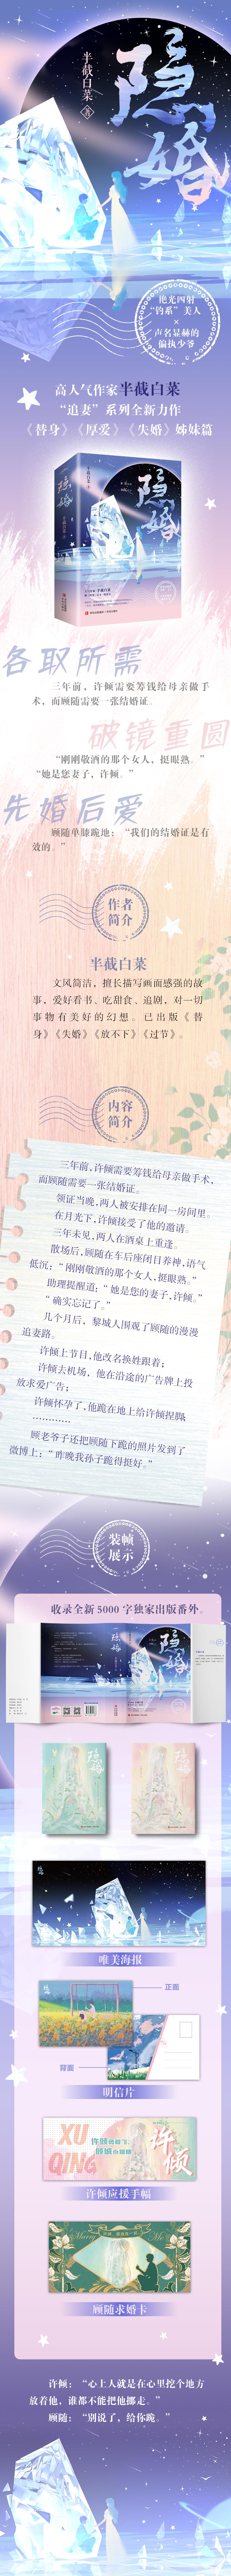 隐婚
半截白菜 著
艳光四射
“钓系”美人
×
声名显赫的
偏执少爷
高人气作家半截白菜
“追妻”系列全新力作
《替身》《厚爱》《失婚》姊妹篇
隐婚
各取所需
三年前，许倾需要筹钱给母亲做手
术，而顾随需要一张结婚证。
破镜重圆
“刚刚敬酒的那个女人，挺眼熟。”
“她是您妻子，许倾。”
先婚后爱
顾随单膝跪地：“我们的结婚证是有
效的。”
作者
简介
半截白菜
文风简洁，擅长描写画面感强的故
事，爱好看书、吃甜食、追剧，对一切
事物有美好的幻想。已出版《替
身》《失婚》《放不下》《过节》。
内容
简介
三年前，许倾需要筹钱给母亲做手术，
而顾随需要一张结婚证。
领证当晚，两人被安排在同一房间里。
在月光下，许倾接受了他的邀请。
三年未见，两人在酒桌上重逢。
散场后，顾随在车后座闭目养神，语气
低沉：“刚刚敬酒的那个女人，挺眼熟。”
助理提醒道：“她是您的妻子，许倾。”
“确实忘记了。”
几个月后，黎城人围观了顾随的漫漫
追妻路。
许倾上节目，他改名换姓跟着；
许倾去机场，他在沿途的广告牌上投
放求爱广告；
许倾怀孕了，他跪在地上给许倾捏脚；
…………
顾老爷子还把顾随下跪的照片发到了
微博上：“昨晚我孙子跪得挺好。”
装帧
展示
收录全新5000字独家出版番外。
隐婚
隐婚
隐婚
隐婚
唯美海报
正面
背面
明信片
XU
QING
许倾
许倾应援手幅
Marry Me
顾随求婚卡
许倾：“心上人就是在心里挖个地方
放着他，谁都不能把他挪走。”
顾随：“别说了，给你跪。”